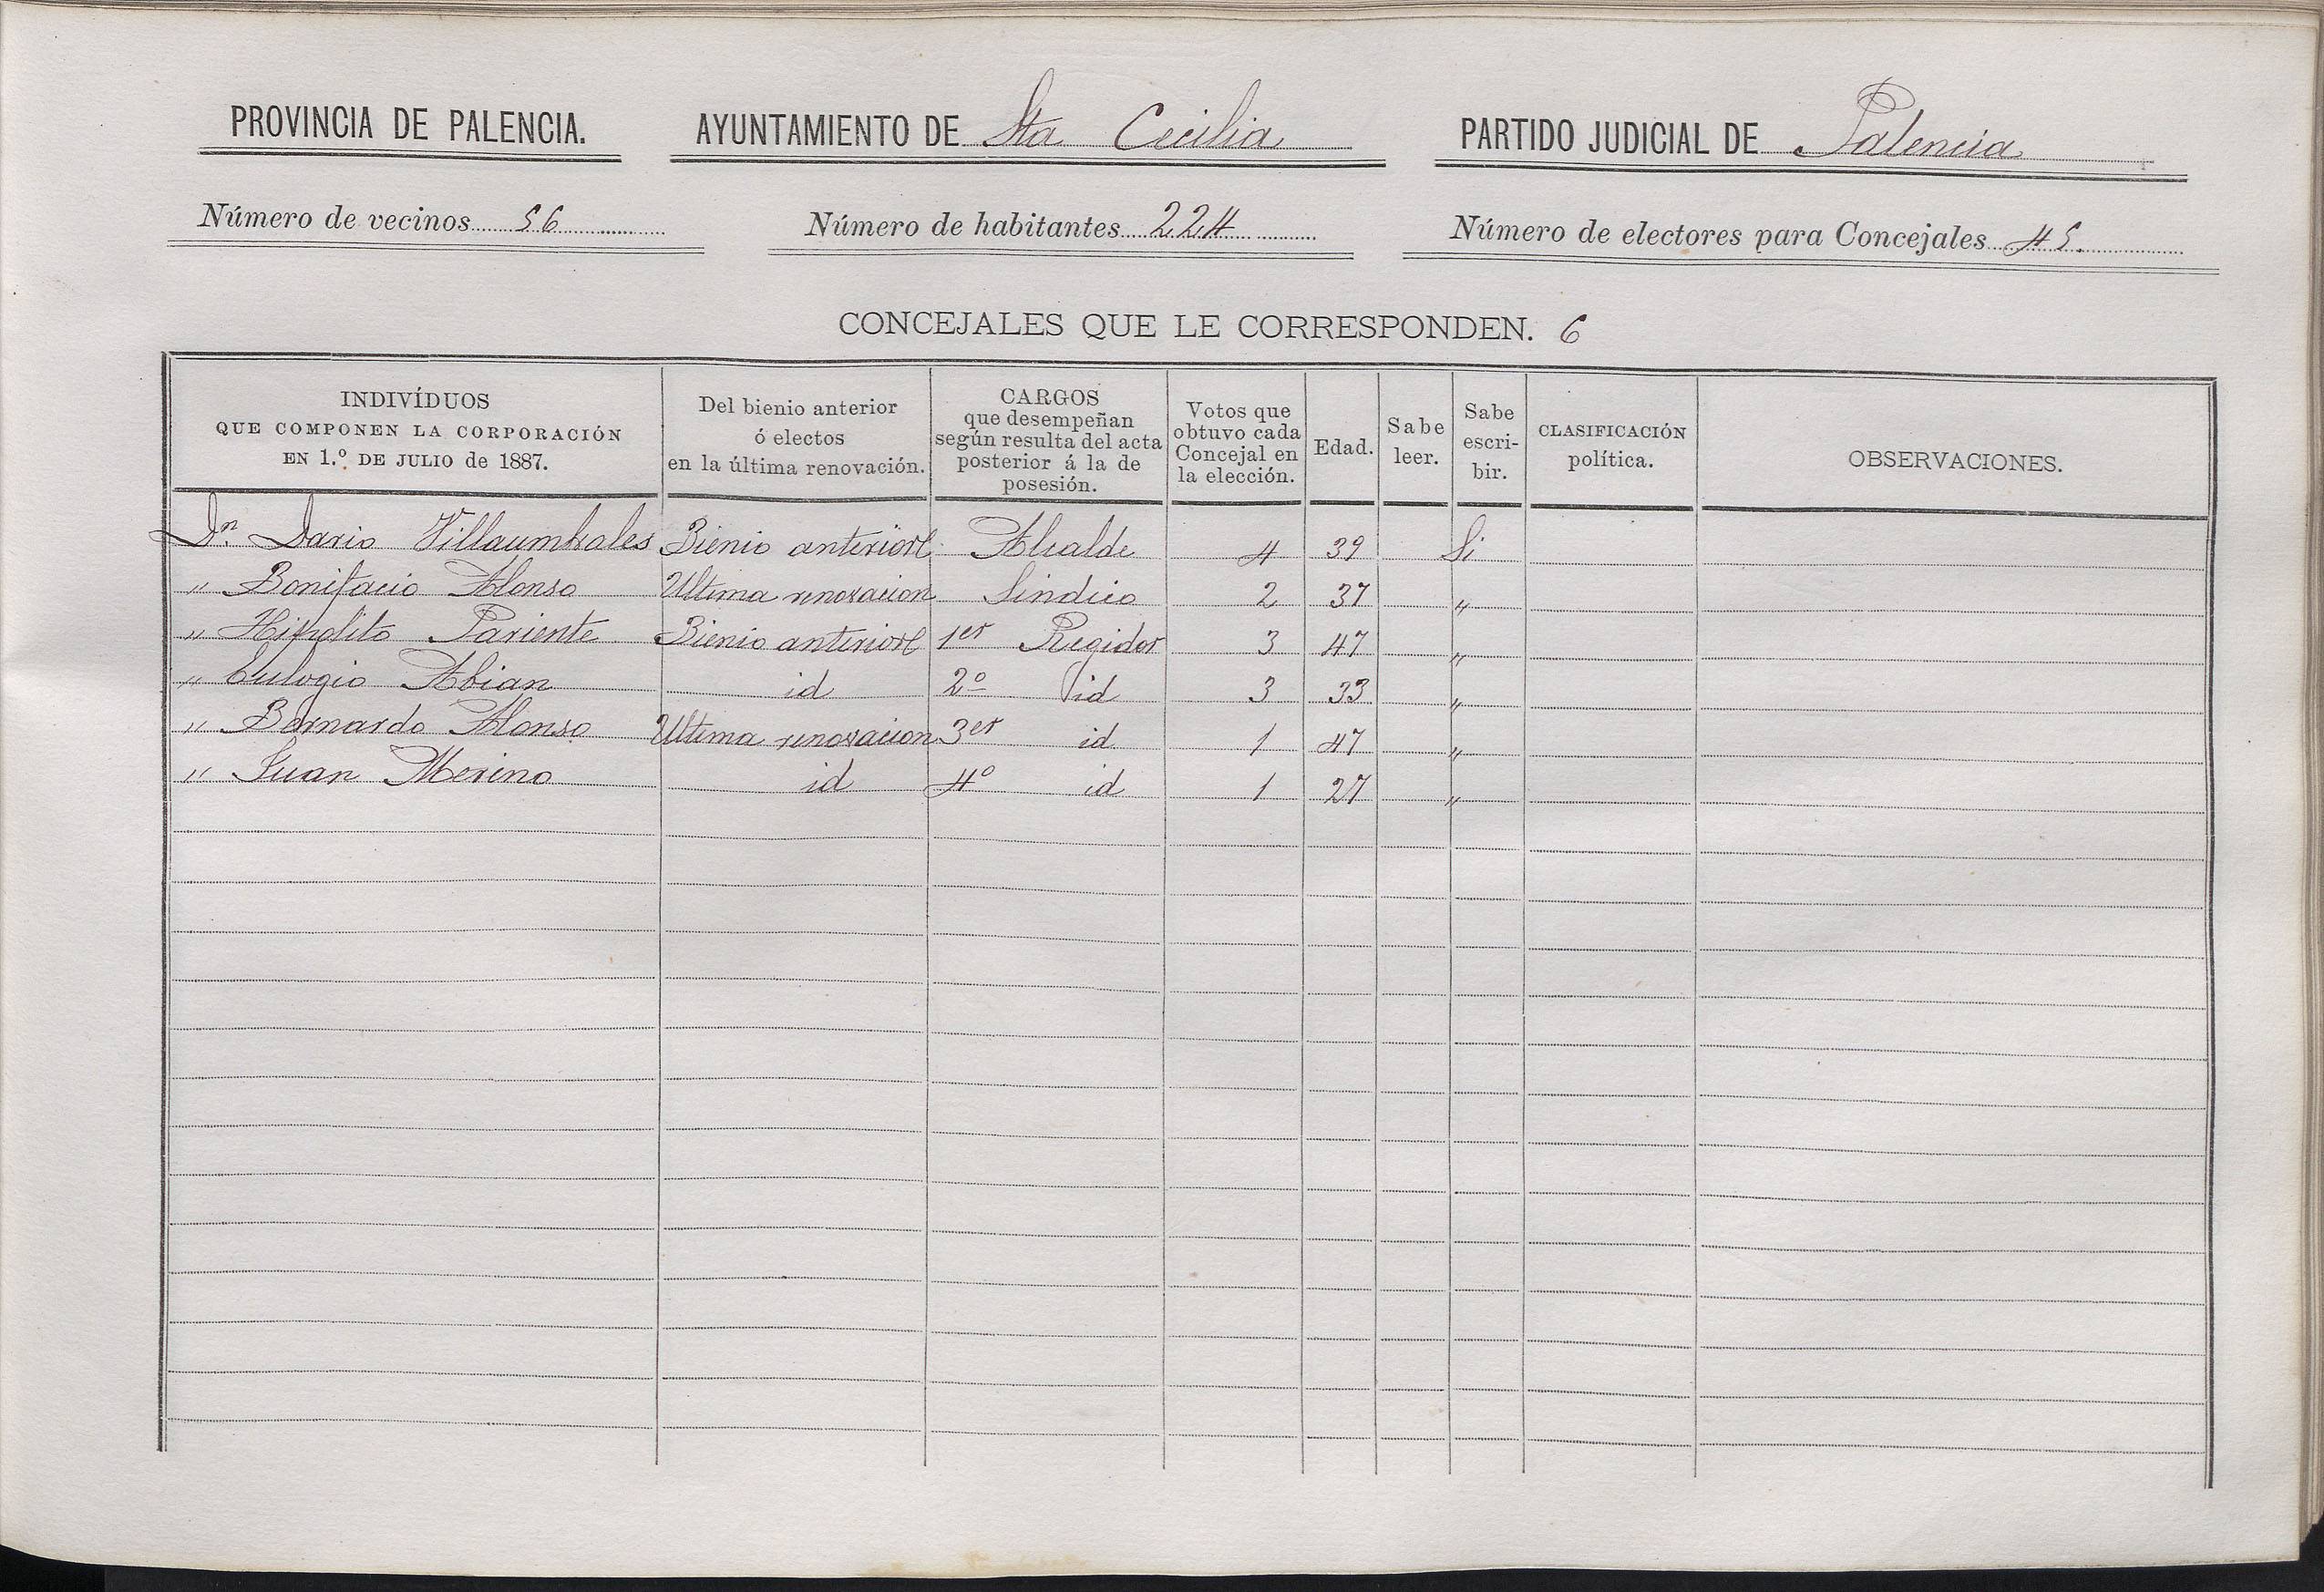 PROVINCIA DE PALENCIA. AYUNTAMIENTO DE Sta Cecilia PARTIDO JUDICIAL DE Palencia
Número de vecinos 56 Número de habitantes 224 Número de electores para Concejales 45.
CONCEJALES QUE LE CORRESPONDEN. 6
INDIVÍDUOS
QUE COMPONEN LA CORPORACIÓN
EN 1.º DE JULIO de 1887.
Del bienio anterior
ó electos
en la última renovación.
CARGOS
que desempeñan
según resulta del acta
posterior á la de
posesión.
Votos que
obtuvo cada
Concejal en
la elección.
Edad.
Sabe
leer.
Sabe
escri-
bir.
CLASIFICACIÓN
política.
OBSERVACIONES.
Dn. Dario Villaumbrales Bienio anterior Alcalde 4 39 Si
" Bonifacio Alonso Ultima renovacion Sindico 2 37 "
" Hipolito Pariente Bienio anterior 1er Regidor 3 47 "
" Eulogio Abian id 2º id 3 33 "
" Bernardo Alonso Ultima renovacion 3er id 1 47 "
" Juan Merino id 4º id 1 27 "